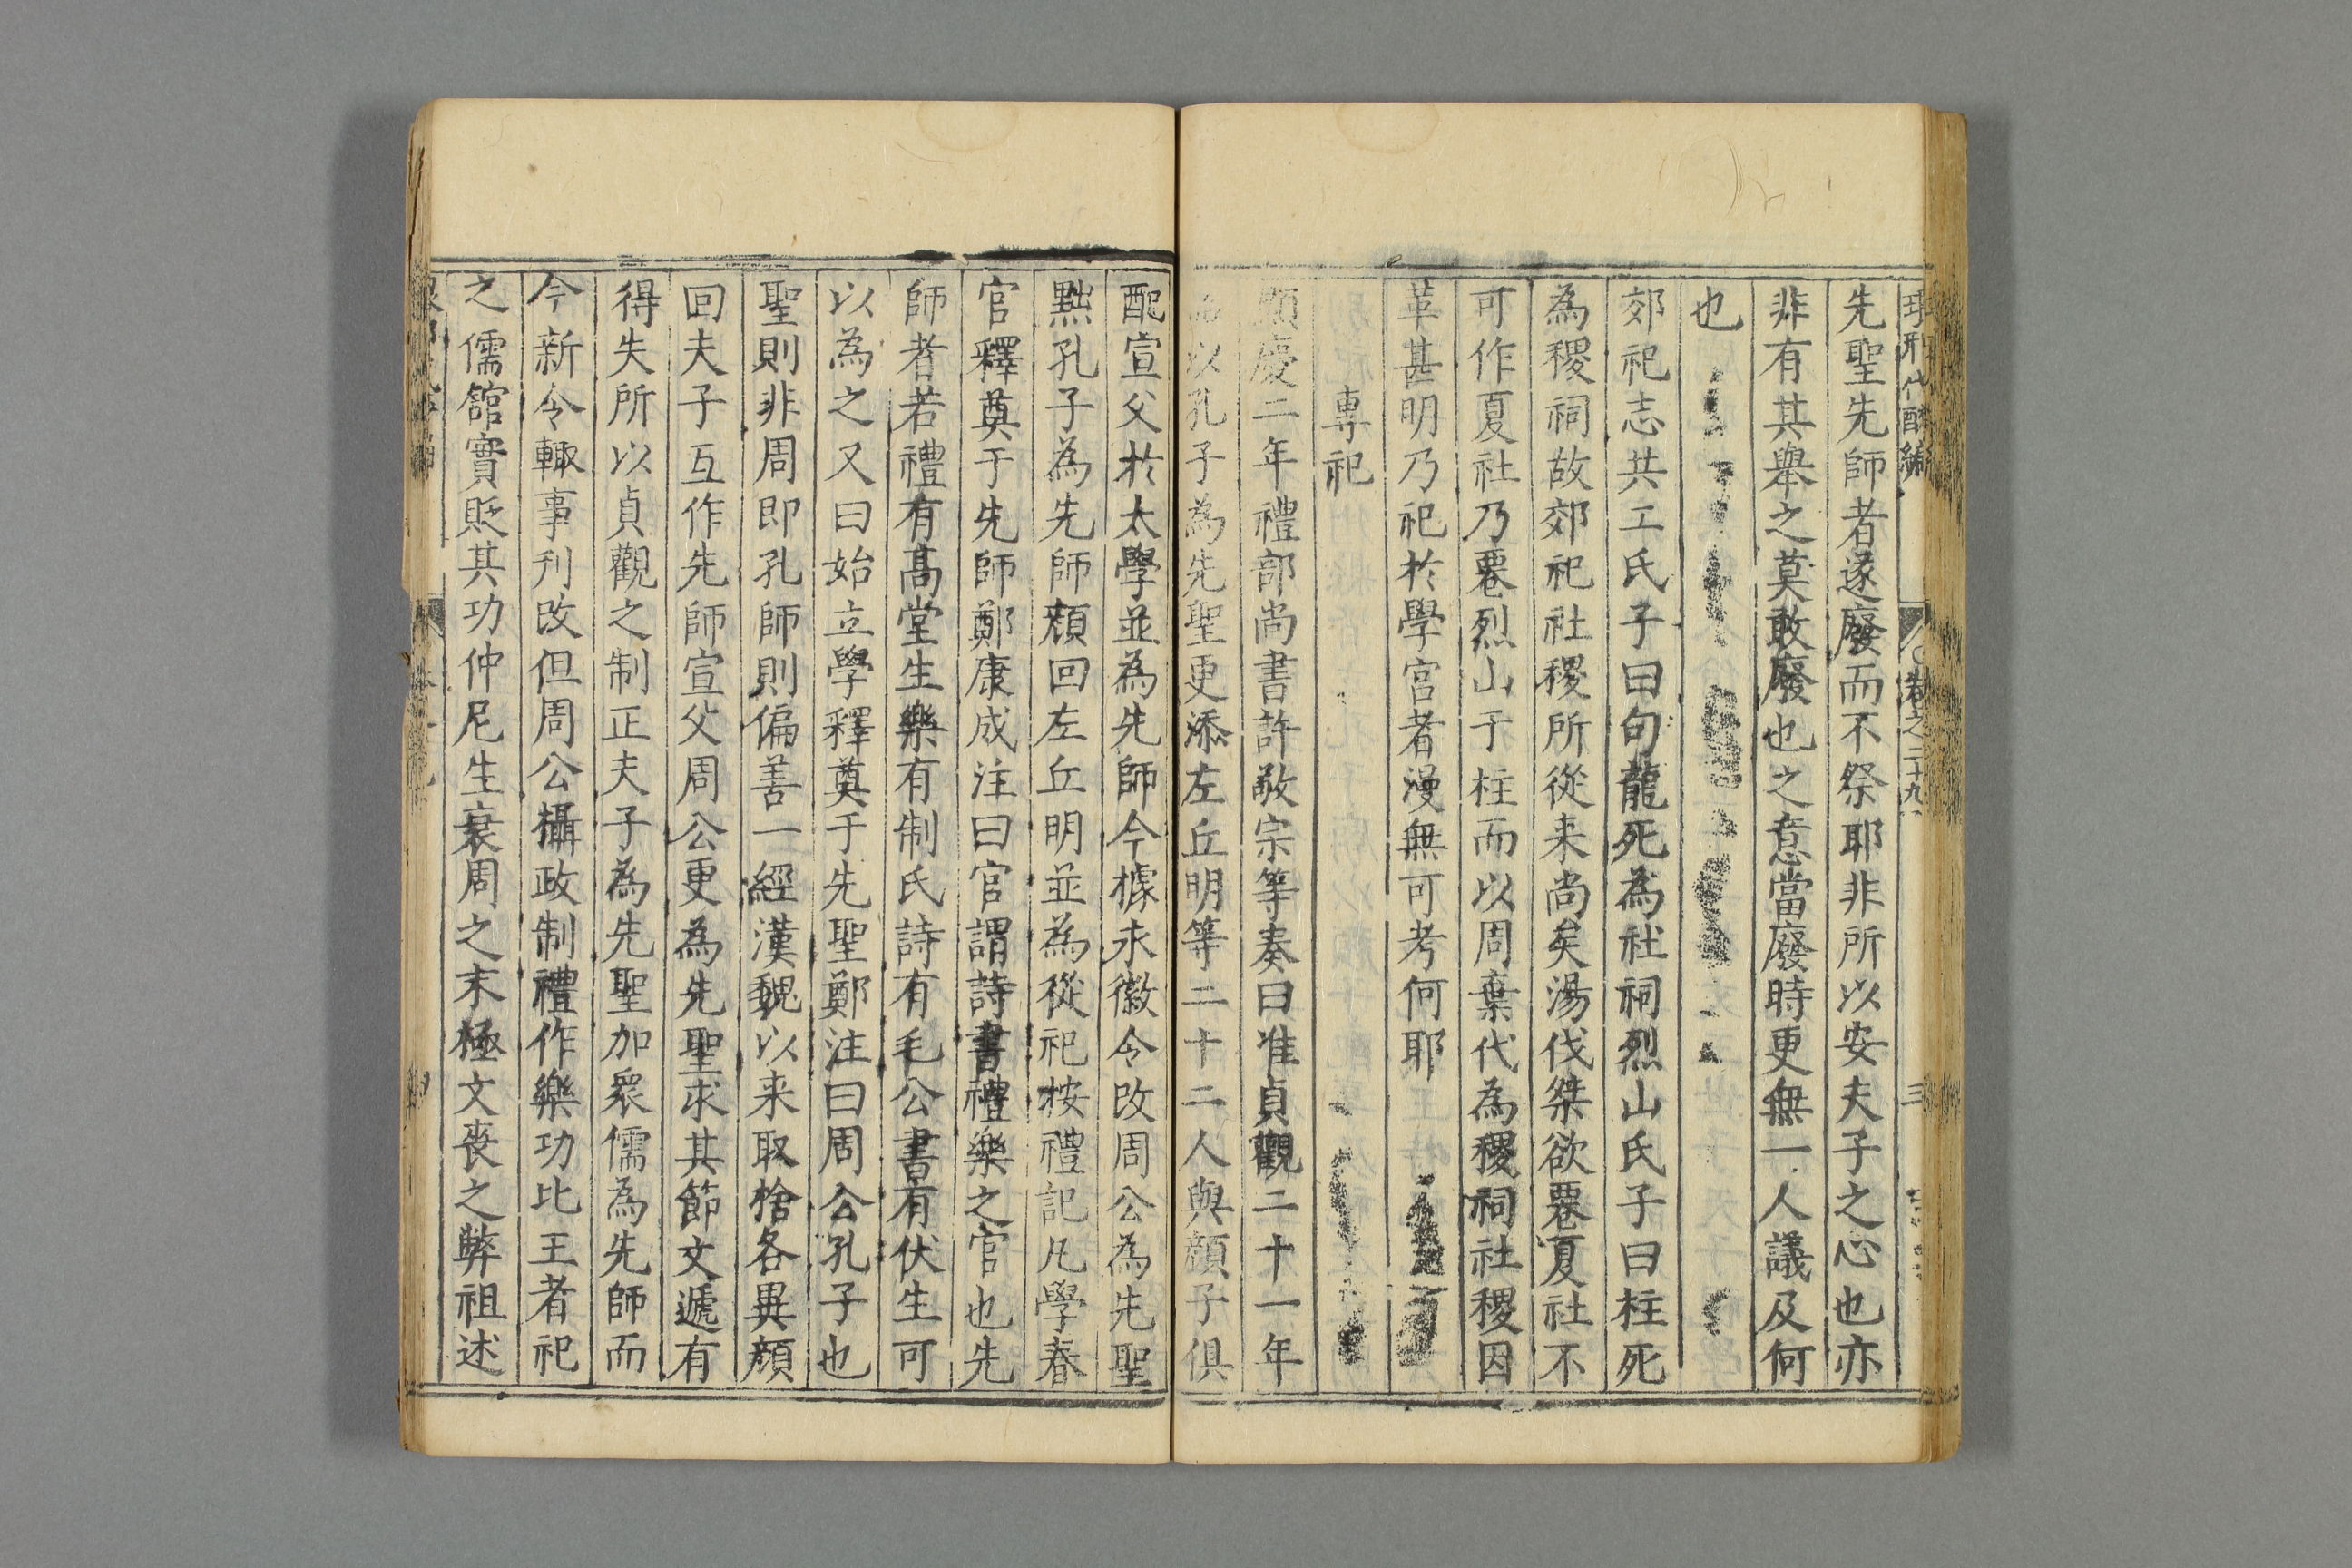 卷之二十九
三
先聖先師者遂廢而不祭耶非所以安夫子之心也亦
非有其舉之莫敢廢也之意當廢時更無一人議及何
也
郊祀志共工氏子曰句龍死為社祠烈山氏子曰柱死
為稷祠故郊祀社稷所從来尚矣湯伐桀欲䙴夏社不
可作夏社乃䙴烈山于柱而以周棄代為稷祠社稷因
革甚明乃祀於學宮者漫無可考何耶
專祀
顯慶二年禮部尚書許敬宗等奏曰准貞觀二十一年
詔以孔子為先聖更添左丘明等二十二人與顔子俱
配宣父於太學並為先師今據永徽令改周公為先聖
黜孔子為先師顔回左丘明並為從祀桉禮記凡學春
官釋奠于先師鄭康成注曰官謂詩書禮樂之官也先
師者若禮有髙堂生樂有制氏詩有毛公書有伏生可
以為之又曰始立學釋奠于先聖鄭注曰周公孔子也
聖則非周即孔師則偏善一經漢魏以来取捨各異顔
回夫子互作先師宣父周公更為先聖求其節文遞有
得失所以貞觀之制正夫子為先聖加衆儒為先師而
今新令輙事刋改但周公攝政制禮作樂功比王者祀
之儒舘實貶其功仲尼生衰周之末極文喪之弊祖述